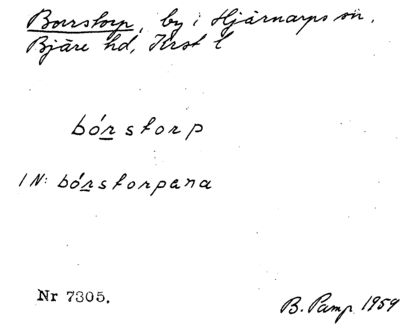 Borrstorp, by i Hjärnarps sn,
Bjäre hd, Krst l
bórstorp
IN: bórstorpana
Nr 7305.
B. Pamp 1959